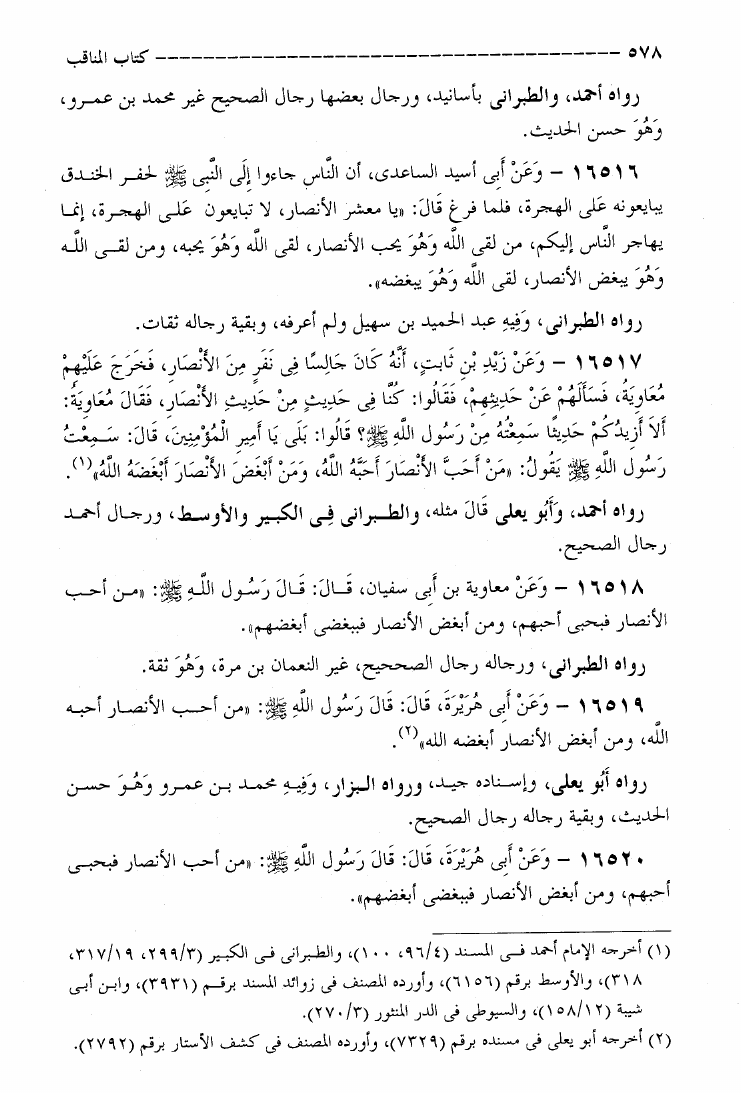 ٥٧٨ ------------------------------------------ كتاب المناقب
رواه أحمد، والطبرانى بأسانيد، ورجال بعضها رجال الصحيح غير محمد بن عمرو،
وَهُوَ حسن الحديث.
١٦٥١٦ – وَعَنْ أَبِى أسيد الساعدى، أن النَّاس جاءوا إِلَى النَّبِى ﷺ لحفر الخندق
يبايعونه عَلى الهجرة، فلما فرغ قَالَ: «يا معشر الأنصار، لا تبايعون عَلى الهجرة، إنما
يهاجر النَّاس إليكم، من لقى اللَّه وَهُوَ يحب الأنصار، لقى اللَّه وَهُوَ يحبه، ومن لقى اللَّه
وَهُوَ يبغض الأنصار، لقى اللَّه وَهُوَ يبغضه».
رواه الطبرانى، وَفِيهِ عبد الحميد بن سهيل ولم أعرفه، وبقية رجاله ثقات.
١٦٥١٧ – وَعَنْ زَيْدِ بْنِ ثَابِتٍ، أَنَّهُ كَانَ جَالِسًا فِى نَفَرٍ مِنَ الأَنْصَارِ، فَخَرَجَ عَلَيْهِمْ
مُعَاوِيَةُ، فَسَأَلَهُمْ عَنْ حَدِيثِهِمْ، فَقَالُوا: كُنَّا فِى حَدِيثٍ مِنْ حَدِيثِ الأَنْصَارِ، فَقَالَ مُعَاوِيَةُ:
أَلاَ أَزِيدُكُمْ حَدِيثًا سَمِعْتُهُ مِنْ رَسُول اللَّهِ ﷺ؟ قَالُوا: بَلَى يَا أَمِيرِ الْمُؤْمِنِينَ، قَالَ: سَمِعْتُ
رَسُول اللَّهِ ﷺ يَقُولُ: «مَنْ أَحَبَّ الأَنْصَارَ أَحَبَّهُ اللَّهُ، وَمَنْ أَبْغَضَ الأَنْصَارَ أَبْغَضَهُ اللَّهُ»(١).
رواه أحمد، وَأَبُو يعلى قَالَ مثله، والطبرانى فِى الكبير والأوسط، ورجال أحمد
رجال الصحيح.
١٦٥١٨ – وَعَنْ معاوية بن أَبِى سفيان، قَالَ: قَالَ رَسُول اللَّهِ ﷺ: «من أحب
الأنصار فبحبى أحبهم، ومن أبغض الأنصار فببغضى أبغضهم».
رواه الطبرانى، ورجاله رجال الصححيح، غير النعمان بن مرة، وَهُوَ ثقة.
١٦٥١٩ – وَعَنْ أَبِى هُرَيْرَةَ، قَالَ: قَالَ رَسُول اللَّهِ ﷺ: «من أحب الأنصار أحبه
اللَّه، ومن أبغض الأنصار أبغضه الله»(٢).
رواه أَبُو يعلى، وإسناده جيد، ورواه البزار، وَفِيهِ محمد بن عمرو وَهُوَ حسن
الحديث، وبقية رجاله رجال الصحيح.
١٦٥٢٠ – وَعَنْ أَبِى هُرَيْرَةَ، قَالَ: قَالَ رَسُول اللَّهِ ﷺ: «من أحب الأنصار فبحبى
أحبهم، ومن أبغض الأنصار فببغضى أبغضهم».
(١) أخرجه الإمام أحمد فى المسند (٩٦/٤، ١٠٠)، والطبرانى فى الكبير (٢٩٩/٣، ٣١٧/١٩،
٣١٨)، والأوسط برقم (٦١٥٦)، وأورده المصنف فى زوائد المسند برقم (٣٩٣١)، وابن أبى
شيبة (١٥٨/١٢)، والسيوطى فى الدر المنثور (٢٧٠/٣).
(٢) أخرجه أبو يعلى فى مسنده برقم (٧٣٢٩)، وأورده المصنف فى كشف الأستار برقم (٢٧٩٢).